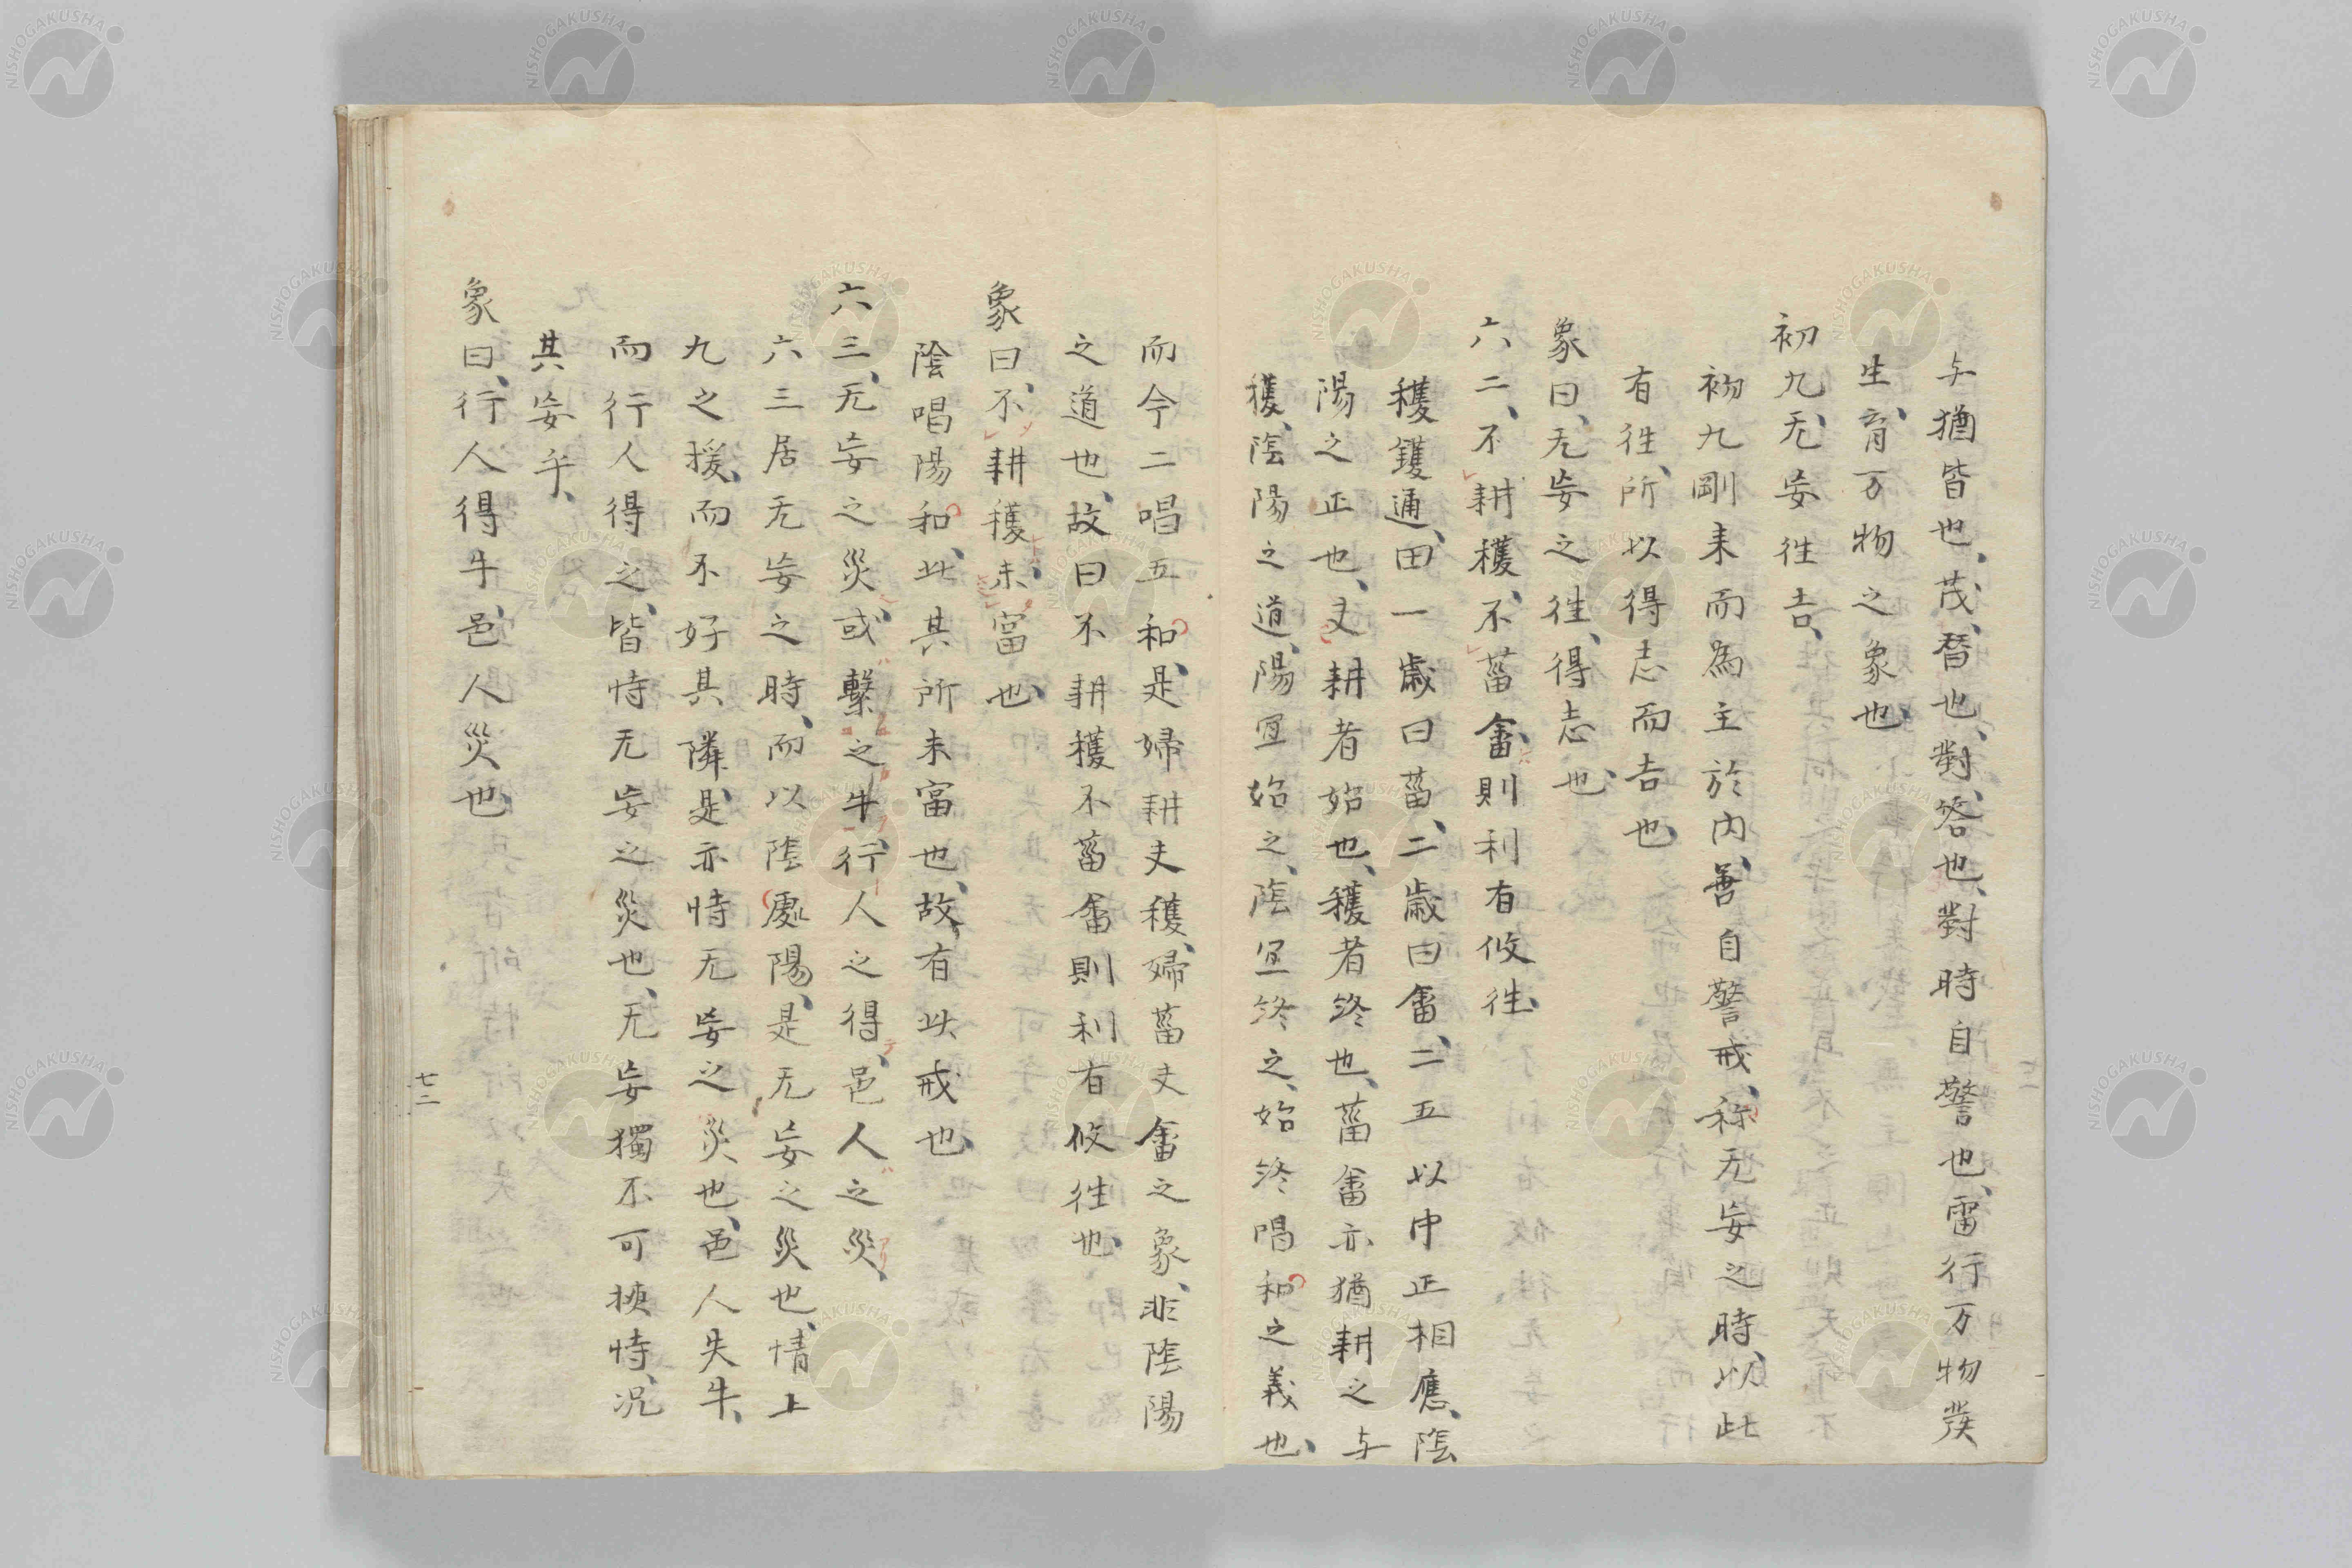 与猶皆也、茂、暦也、對、答也、對時自警也、雷行万物發
生、育万物之象也、
初九、无妄往吉、
初九剛来而為主於内、善自警戒、称无妄之時、以此
有往、所以得志而吉也、
象曰、无妄之往、得志也、
六二、不耕穫、不菑畬、則利有攸往、
穫鑊通、田一歳曰菑、二歳曰畬、二五以中正相應、陰
陽之正也、夫耕者始也、穫者終也、菑畬亦猶耕之与
穫、陰陽之道、陽宜始之、陰宜終之、始終唱和之義也、
而今二唱五和、是婦耕夫穫、婦菑夫畬之象、非陰陽
之道也、故曰不耕穫不菑畬則利有攸往也、
象曰、不耕穫、未富也、
陰唱陽和、此其所未富也、故有此戒也、
六三、无妄之災、或繫之牛、行人之得、邑人之災、
六三居无妄之時、而以陰處陽、是无妄之災也、情上
九之援、而不好其隣、是亦恃无妄之災也、邑人失牛、
而行人得之、皆恃无妄之災也、无妄獨不可挾恃、况
其妄乎、
象曰、行人得牛、邑人災也、
七二